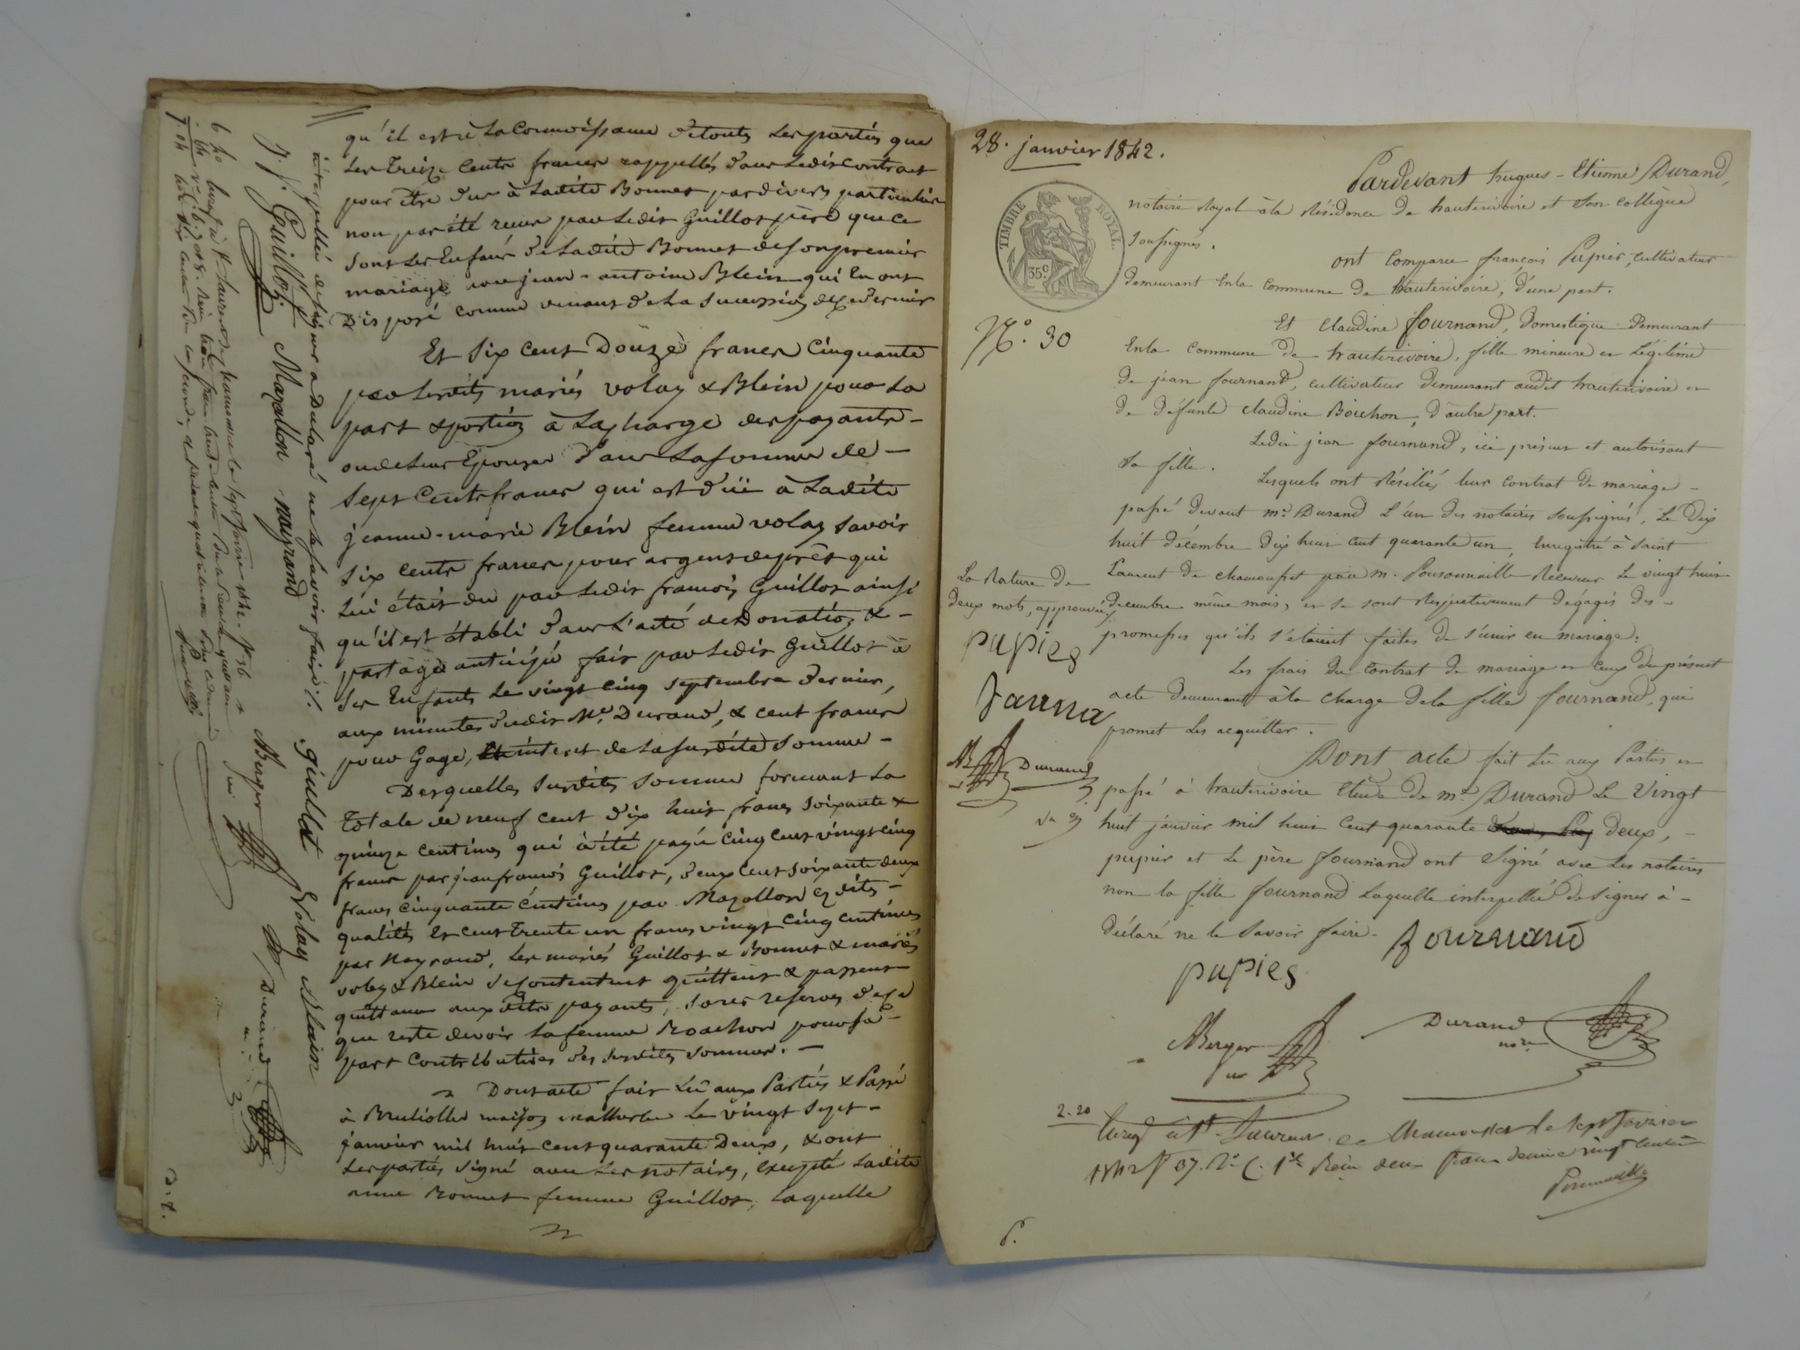 qu'il est à La Connoissance de toutes Les parties que
Les treize Cents francs rappellés dans Ledit Contrat
pour être dus à Ladite Bonnet par divers particuliers
non pas été reçus par Ledit Guillot père que ce
sont Les Enfans de Ladite Bonnet de son premier
mariage avec jean-antoine Blein qui En ont
disposé comme venant de La succession de ce dernier
Et Six cent Douze francs Cinquante
par Lesdits mariés volay & Blein pour La
part & portion à La charge des payants -
ou de Leurs Epouses dans La somme de -
Sept Cents francs qui est düe à Ladite
jeanne-marie Blein femme volay savoir
Six cents francs pour argent de prêt qui
Lui était du par Ledit françois Guillot ainsi
qu'il est établi dans L'acte de Donation & -
partage anticipé fait par Ledit Guillot à
Ses Enfants Le vingt cinq septembre dernier,
aux minutes dudit Me. Durand, & cent francs
pour Gage, intérêt de La susdite Somme -
Desquelles susdites sommes formant La
Totale de neuf cent dix huit francs soixante &
quinze centimes qui a été payée cinq cent vingt cinq
francs par jean françois Guillot, deux cent soixante deux
francs cinquante centimes par Mazallon es dites -
qualités Et cent trente un francs vingt cinq centimes
par Nayrand, Les mariés Guillot & Bonnet & mariés
volay & Blein se contentent quittent & passent
quittance aux dits payants, sans reserves de ce
que reste devoir La femme Roachon pour sa -
part Contributives des susdites sommes. -
Dont acte fait Lû aux Parties & Passé
à Brulliolles maison Le vingt Sept -
janvier mil huit cent quarante Deux, & ont
Les parties signé avec Les notaires, excepté Ladite
anne Bonnet femme Guillot, Laquelle
interpellée de signer a Déclaré ne le savoir faire.
J. f. Guillot Mazallon nayrand giullot Volay Blein
ABerger
Durand
28. janvier 1842.
TIMBRE ROYAL.
35c
No. 30
Pardevant hugues-Etienne Durand,
notaire Royal à la Résidence de hauterivoire et Son collègue
Soussignés.
ont Comparu françois Pupier, cultivateur
demeurant En la commune de hauterivoire, d'une part.
Et Claudine fournand, domestique Demeurant
En la commune de hauterivoire, fille mineure et Légitime
de jean fournand, cultivateur demeurant audit hauterivoire et
de défunte claudine Boichon, d'autre part.
Ledit jean fournand, ici présent et autorisant
Sa fille.
Lesquels ont Résilié leur contrat de mariage -
passé devant me. Durand L'un des notaires soussignés, Le Dix
huit décembre Dix huit cent quarante un, Enregistré à Saint
Laurent de chamousset par m. Ponsonnaille Receveur Le vingt huit
décembre même mois, et se sont Respectivement dégagés des -
promesses qu'ils s'étaient faites de s'unir en mariage.
Les frais du contrat de mariage et Ceux du présent
acte demeurant à la charge de la fille fournand, qui
promet Les acquitter.
Dont acte fait Lu aux Parties et
passé à hauterivoire Etude de me. Durand Le Vingt
huit janvier mil huit cent quarante deux, -
pupier et Le père fournand ont Signé avec Les notaires
non la fille fournand Laquelle interpellée de signer à -
déclaré ne le Savoir faire.
fournand
pupier
ABerger
Durand
nore
La Rature de
deux mots, approuvée
pupier
Durand
2-20
Enreg. à St. Laurent de Chamousset le sept février
1842 fo 37. Ro. C. 1re Reçu deux francs décime vingt centimes
Ponsonnaille